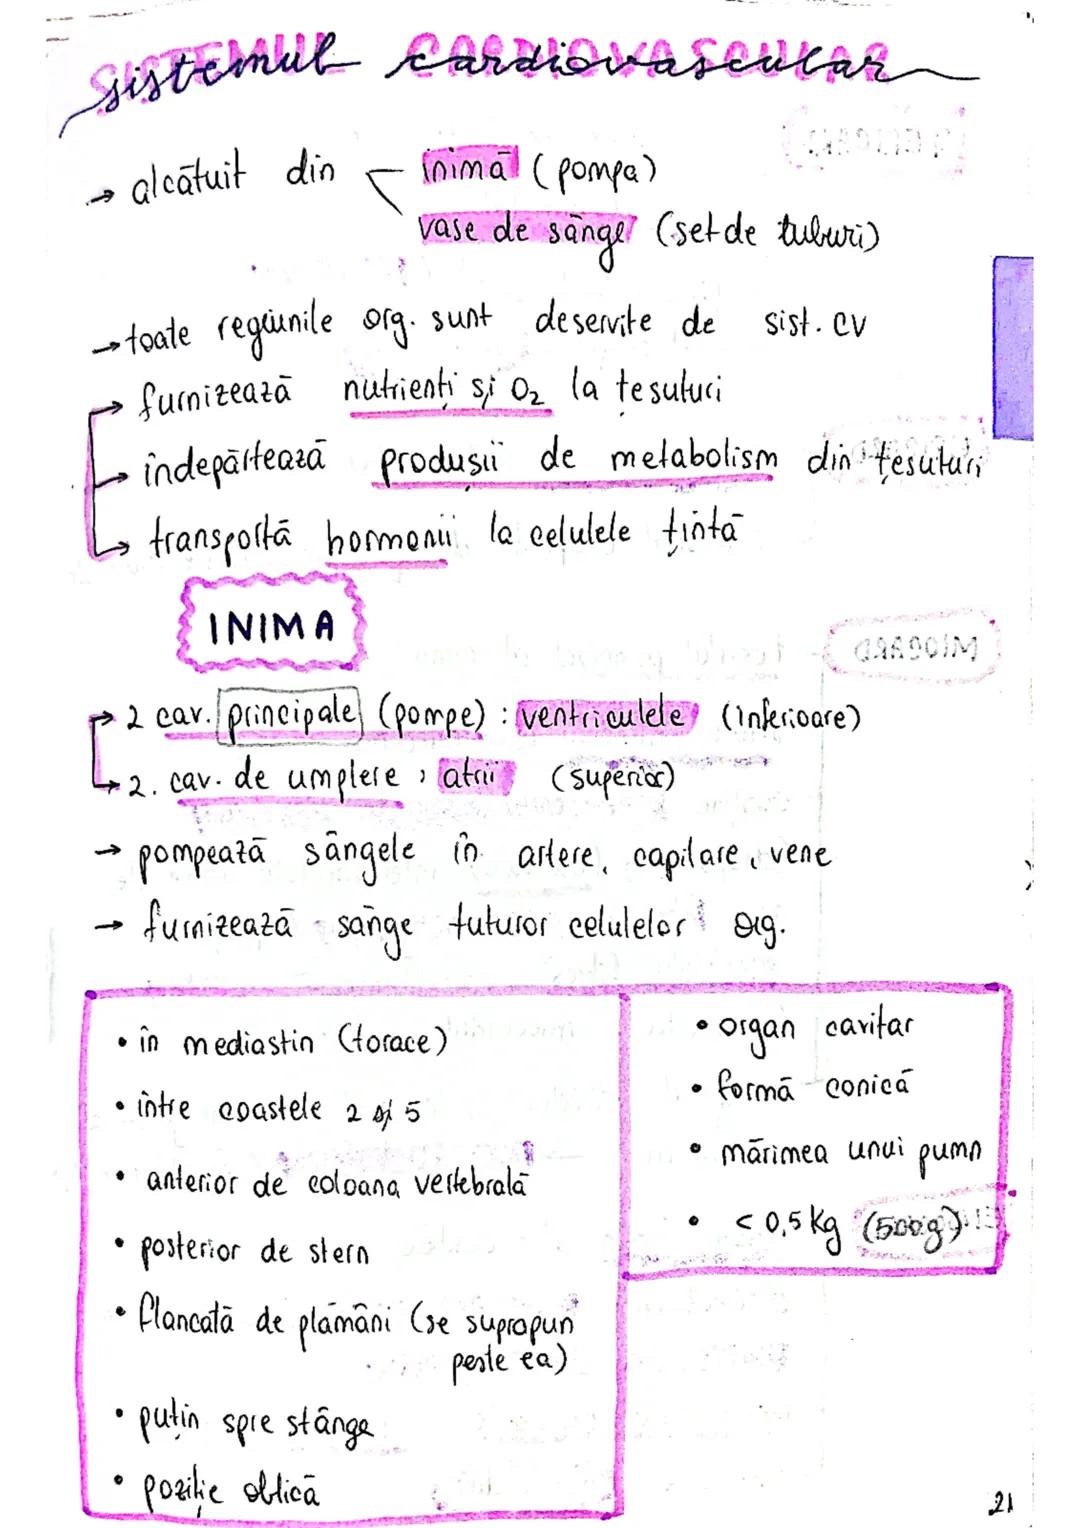 sistemul cardiovascular
→ alcătuit din inimă (pompa)
vase de sânge (set de tuburi)
→ toate regiunile org. sunt deservite de sist. CV
→ furnizează nutrienți și O₂ la țesuturi
→ îndepărtează produșii de metabolism din țesuturi
→ transportă hormonii la celulele țintă
INIMA
MIOCARD
→ 2 cav. principale (pompe) : ventriculele (inferioare)
→ 2. cav. de umplere : atrii (superior)
→ pompează sângele în artere, capilare, vene
→ furnizează sânge tuturor celulelor org.
• în mediastin (torace)
• între coastele 2 și 5
• anterior de coloana vertebrală
• posterior de stern
• flancată de plămâni (se suprapun
peste ea)
• puțin spre stânga
• poziție oblică
• organ cavitar
• formă conică
• mărimea unui pumn
• < 0,5 kg (500g)
21